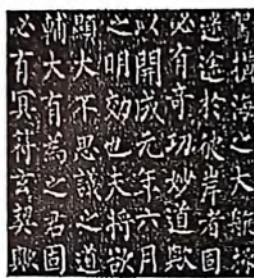 駕橫海之大航拯
迷途於彼岸者固
必有奇功妙道歟
以開成元年六月
之明効也夫將欲
顯大不思議之道
輔大有為之君固
必有冥符玄契歟